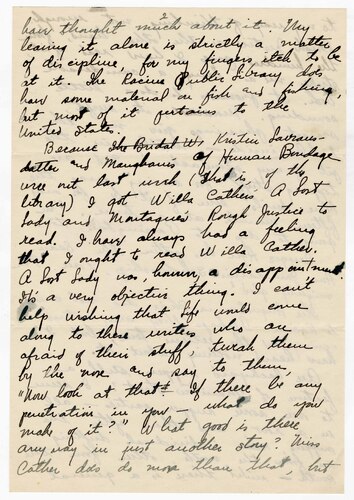 2
have thought much about it. My
leaving it alone is strictly a matter
of discipline, for my fingers itch to be
at it. The Racine Public Library does
have some material on fish and fishing,
but most of it pertains to the
United States.
Because the Bridal Ws Kristin Lavrans-
datter and Maugham's Of Human Bondage
were out last week (that is of the
library) I got Willa Cather's A Lost
Lady and Montague's Rough Justice to
read. I have always had a feeling
that I ought to read Willa Cather.
A Lost Lady was, however, a disappointment.
It's a very objective thing. I can't
help wishing that life would come
along to these writers who are
afraid of their stuff, tweak them
by the nose and say to them,
"Now look at that! If there be any
penetration in you — what do you
make of it?" What good is there
any way in just another story? Miss
Cather does do more than that, but